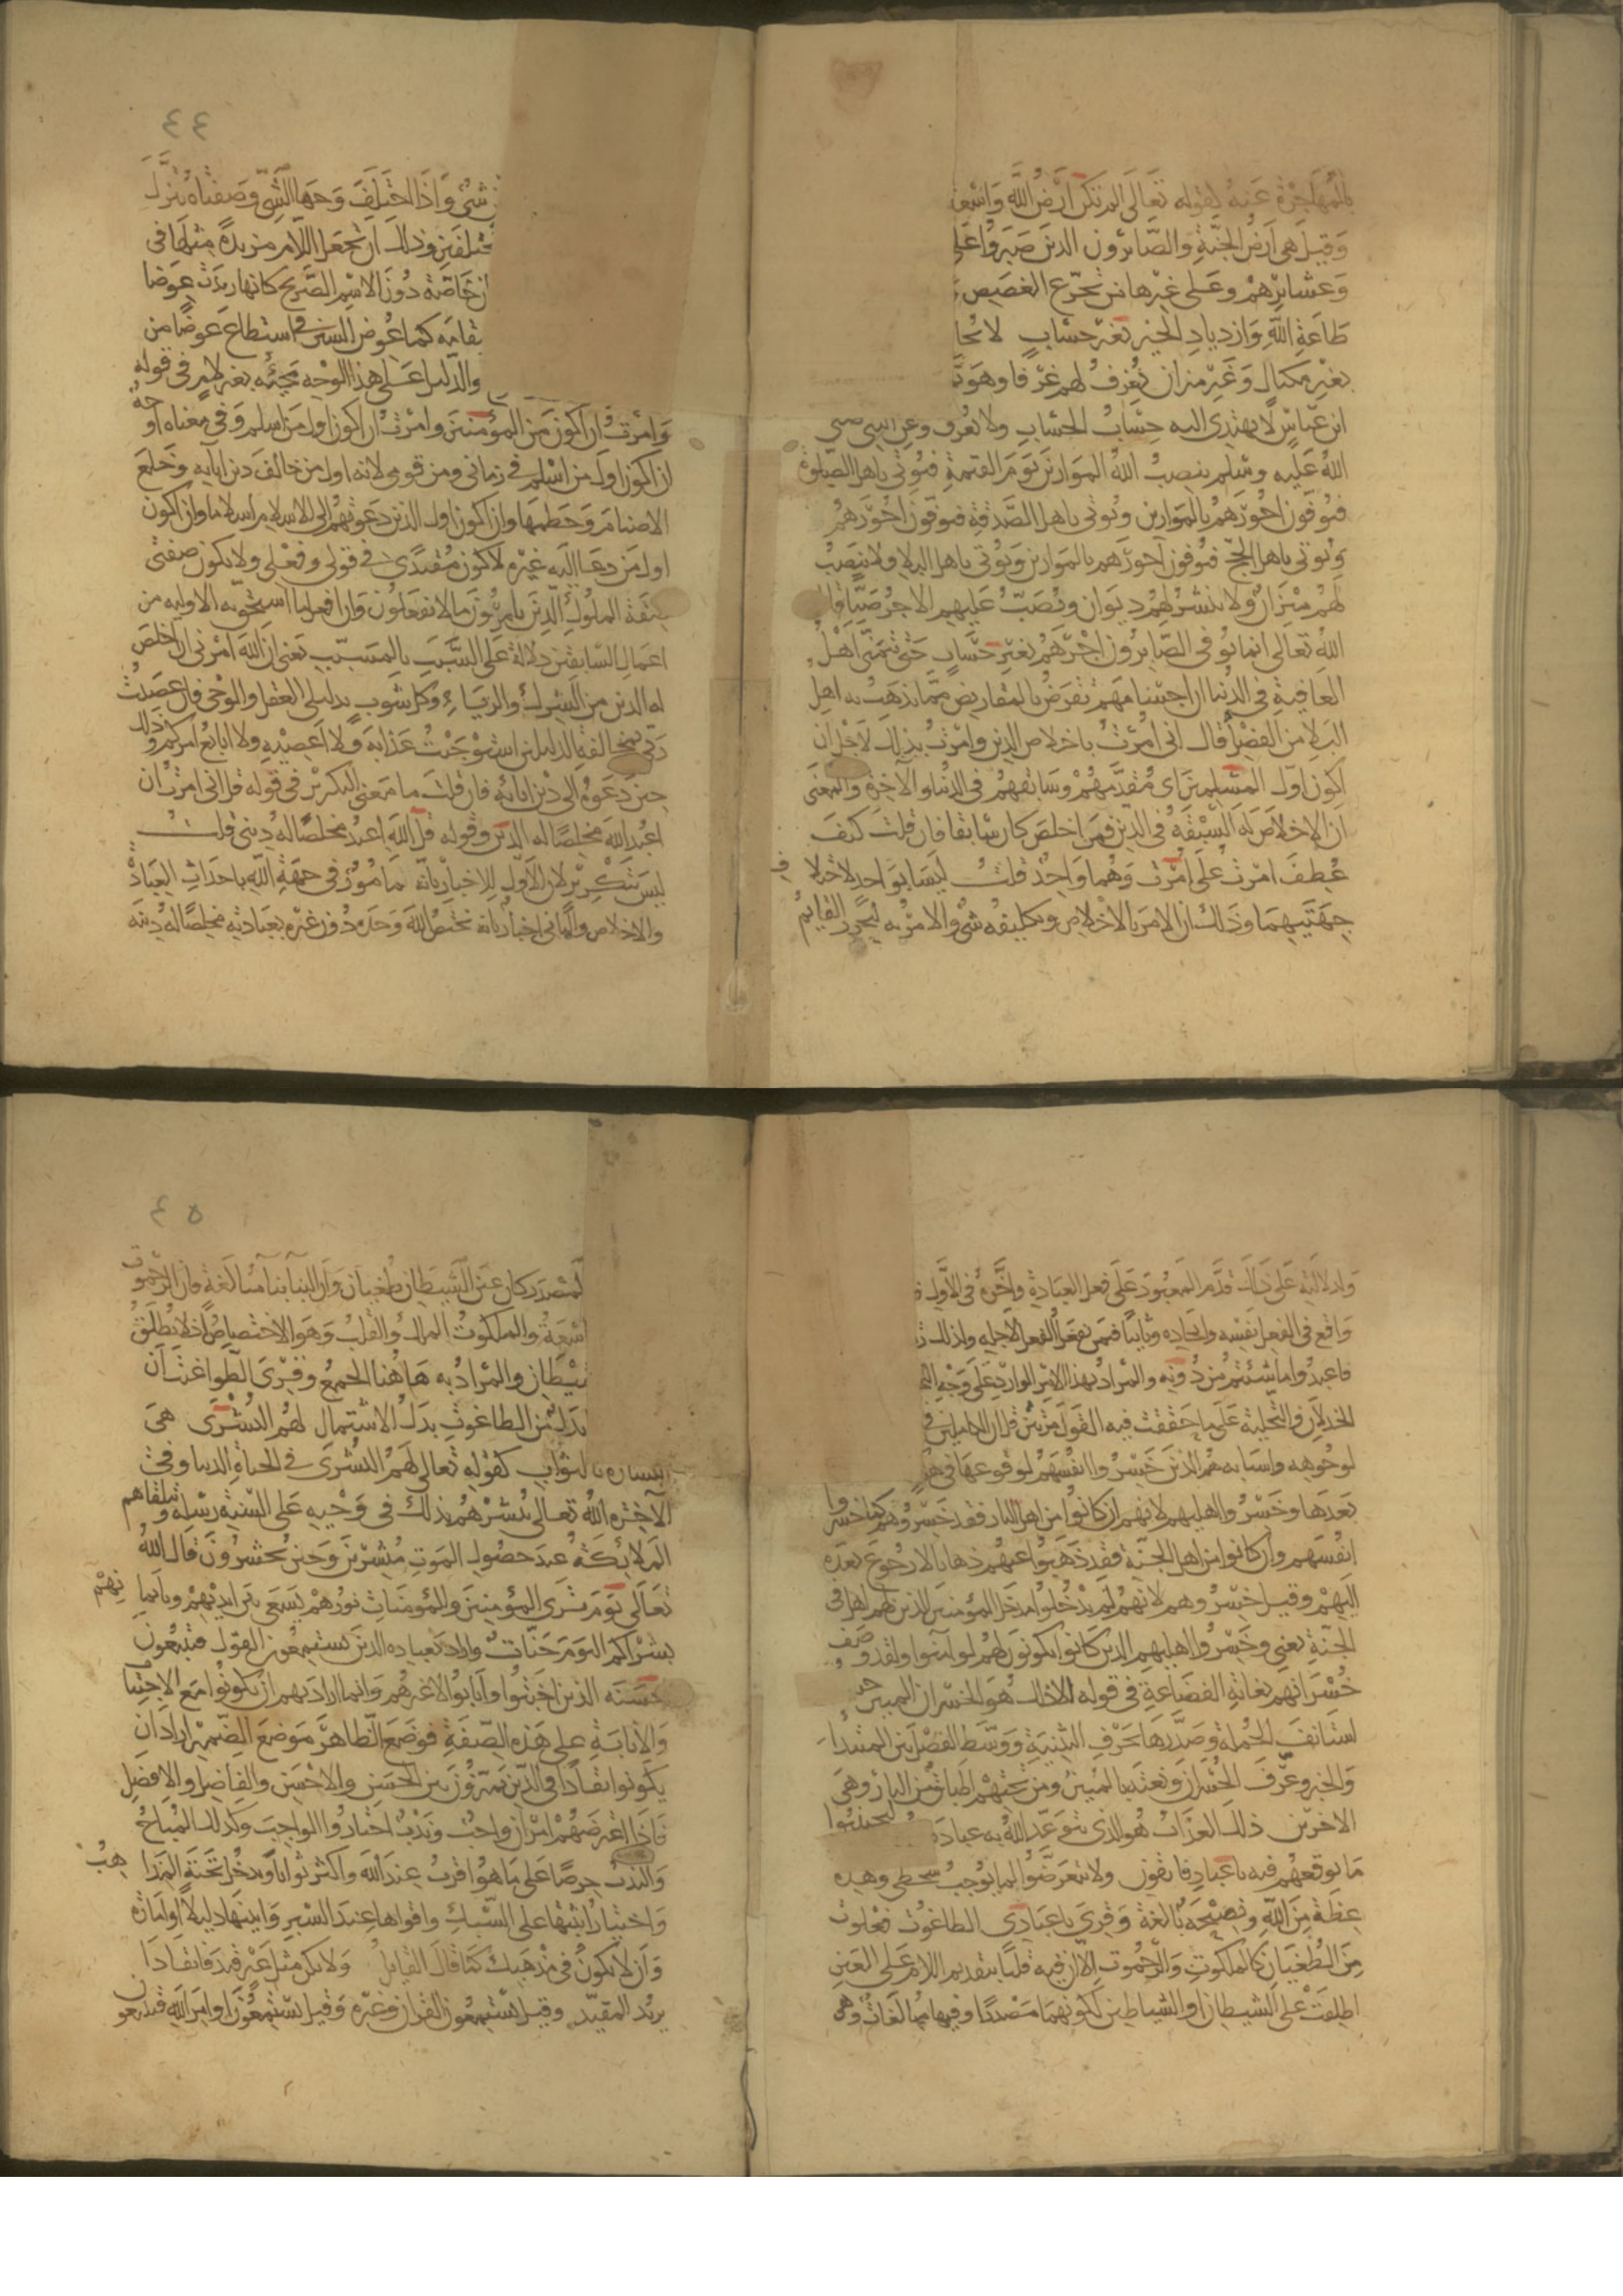 بالمهاجرة عنه لقوله تعالى الم تكن ارض الله واسعة
وقيل هي ارض الجنة والصابرون الذين صبروا على
وعشائرهم وعلى غيرها من تجرع الغصص
طاعة الله وازدياد الخير بغير حساب لا يحا
بغير مكيال وغير ميزان يغرف لهم غرفا وهو
ابن عباس لا يهتدي اليه حساب الحساب ولا يعرف وعن النبي صلى
الله عليه وسلم ينصب الله الموازين يوم القيمة فيؤتى باهل الصلوة
فيوفون اجورهم بالموازين ويؤتى باهل الصدقة فيوفون اجورهم
ويؤتى باهل الحج فيوفون اجورهم بالموازين ويؤتى باهل البلا ولا ينصب
لهم ميزان ولا ينشر لهم ديوان ويصب عليهم الاجر صبا قال
الله تعالى انما يوفى الصابرون اجرهم بغير حساب حتى يتمنى اهل
العافية في الدنيا ان اجسامهم تقرض بالمقاريض مما يذهب به اهل
البلا من الفضل قال اني امرت باخلاص الدين وامرت بذلك لاجل ان
اكون اول المسلمين اي مقدمهم وسابقهم في الدنيا والآخرة والمعنى
ان الاخلاص له السبقة في الدين فمن اخلص كان سابقا فان قلت كيف
عطف امرت على امرت وهما واحد قلت ليسا بواحد لاختلاف
جهتيهما وذلك ان الامر بالاخلاص وتكليفه شئ والامر به ليحرز القايم
٤٤
شئ واذا اختلف وجها الشئ وصفتاه ينزل
مختلفين وذلك ان تجعل اللام مزيدة مثلها في
ان خاصة دون الاسم الصريح كانها زيدت عوضا
مقامه كما عوض السين في استطاع عوضا من
والدليل على هذا الوجه مجيئه بغير لام في قوله
وامرت ان اكون من المؤمنين وامرت ان اكون اول من اسلم وفي معناه اوجه
ان اكون اول من اسلم في زماني ومن قومي لانه اول من خالف دين ابايه وخلع
الاصنام وحطمها وان اكون اول الذين دعوتهم الى الاسلام اسلاما وان اكون
اول من دعا اليه غيره لاكون مقتدى في قولي وفعلي ولا يكون صفتي
صفة الملوك الذين يامرون ما لا يفعلون وان افعل ما استحق به الاولية من
اعمال السابقين دلالة على السبب بالمسبب يعني ان الله امرني ان اخلص
له الدين من الشرك والرياء وكل شوب بدليلى العقل والوحي فان عصيت
ربي بمخالفة الدليلين استوجبت عذابه ولا اعصيه ولا اتابع امركم وذلك
حين دعوه الى دين ابائه فان قلت ما معنى التكرير في قوله قل اني امرت ان
اعبد الله مخلصا له الدين وقوله قل الله اعبد مخلصا له ديني قلت
ليس بتكرير لان الاول للاخبار بانه مامور في جهة الله باحداث العبادة
والاخلاص والثاني اخبار بانه يختص الله وحده دون غيره بعبادته مخلصا له دينه
ولدلالته على ذلك قدم المعبود على فعل العبادة واخره في الاول
واقع في الفعل نفسه وايجاده وثانيا فيمن يفعل الفعل لاجله ولذلك
فاعبدوا ما شئتم من دونه والمراد بهذا الامر الوارد على وجه
الخذلان والتخلية على ما حققت فيه القول مرتين قل ان الكاملين في
لوجوهه واسبابه هم الذين خسروا انفسهم لوقوعها في
بعدها وخسروا اهليهم لانهم ان كانوا من اهل النار فقد خسروهم كما خسروا
انفسهم وان كانوا من اهل الجنة فقد ذهبوا عنهم ذهابا لا رجوع بعده
اليهم وقيل خسروهم لانهم لم يدخلوا مدخل المؤمنين الذين لهم اهل في
الجنة يعني وخسروا اهليهم الذين كانوا يكونون لهم لو آمنوا ولقد وصف
خسرانهم بغاية الفضاعة في قوله الا ذلك هو الخسران المبين حيث
استانف الجملة وصدرها بحرف التنبيه ووسط الفصل بين المبتدأ
والخبر وعرف الخسران ونعته بالمبين ومن تحتهم اطباق من النار وهي
الاخرين ذلك العذاب هو الذي يتوعد الله به عباده ليجتنبوا
ما يوقعهم فيه يا عباد فاتقون ولا تتعرضوا لما يوجب سخطي وهذه
عظة من الله ونصيحة بالغة وقرئ يا عبادي الطاغوت فعلوت
من الطغيان كالملكوت والرحموت الا ان فيه قلبا بتقديم اللام على العين
اطلقت على الشيطان او الشياطين لكونهما مصدرا وفيها مبالغات وهي
٤٥
لمصدر كان عين الشيطان طغيان وان البنا بنا مبالغة فان الرحموت
اسعة والملكوت الملك والقلب وهو الاختصاص اذ لا تطلق
شيطان والمراد به هاهنا الجمع وقرئ الطواغيت ان
بدل من الطاغوت بدل الاشتمال لهم البشرى هي
البشارة بالثواب كقوله تعالى لهم البشرى في الحياة الدنيا وفي
الآخره الله تعالى يبشرهم بذلك في وحيه على السنة رسله وتتلقاهم
الملائكة عند حضور الموت مبشرين وحين يحشرون قال الله
تعالى يوم ترى المؤمنين والمؤمنات نورهم يسعى بين ايديهم وبايمانهم
بشراكم اليوم جنات واراد بعباده الذين يستمعون القول فيتبعون
احسنه الذين اجتنبوا وانابوا لا غيرهم وانما اراد بهم ان يكونوا مع الاجتناب
والانابة على هذه الصفة فوضع الظاهر موضع الضمير اراد ان
يكونوا نقادا في الدين يميزون بين الحسن والاحسن والفاضل والافضل
فاذا اعترضهم امران واجب وندب اختاروا الواجب وكذلك المباح
والندب حرصا على ما هو اقرب عند الله واكثر ثوابا ويدخل تحته المذاهب
واختيار اثبتها على السبك واقواها عند السبر وابينها دليلا او امارة
وان لا تكون في مذهبك كما قال القايل ولا تكن مثل عير قيد فانقادا
يريد المقيد وقيل يستمعون القران وغيره وقيل يستمعون اوامر الله فيتبعون